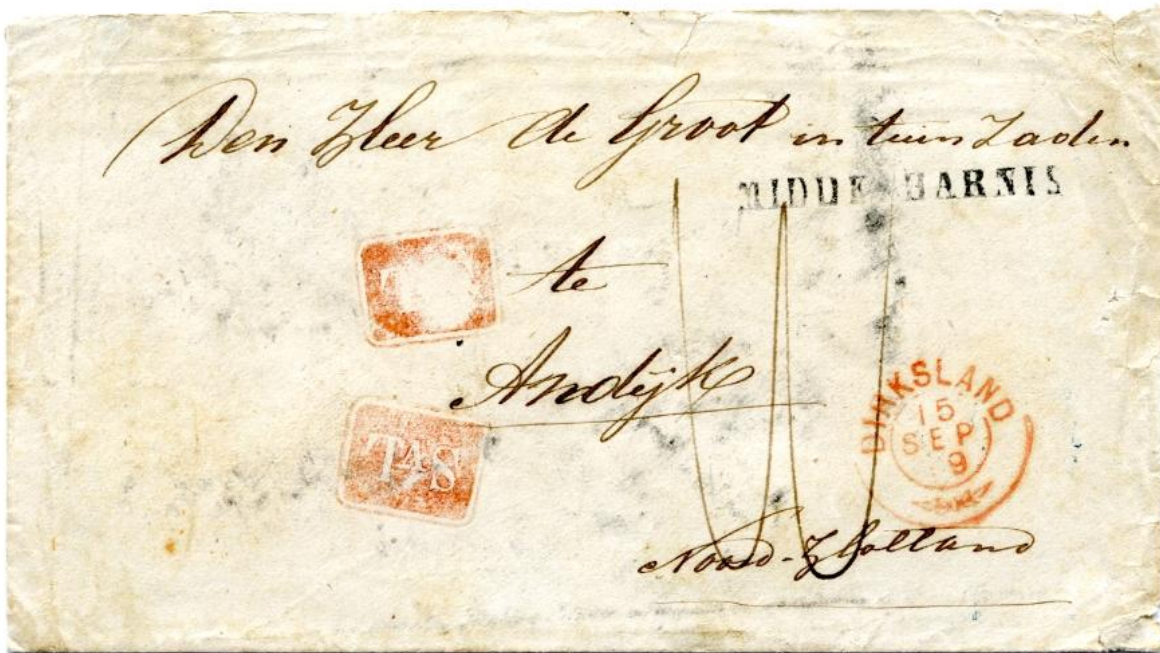 Den Heer de Groot in tuin Zaden
MIDDELHARNIS
te
Andijk
T4S
DIRKSLAND
15
SEP
9
Noord-Holland